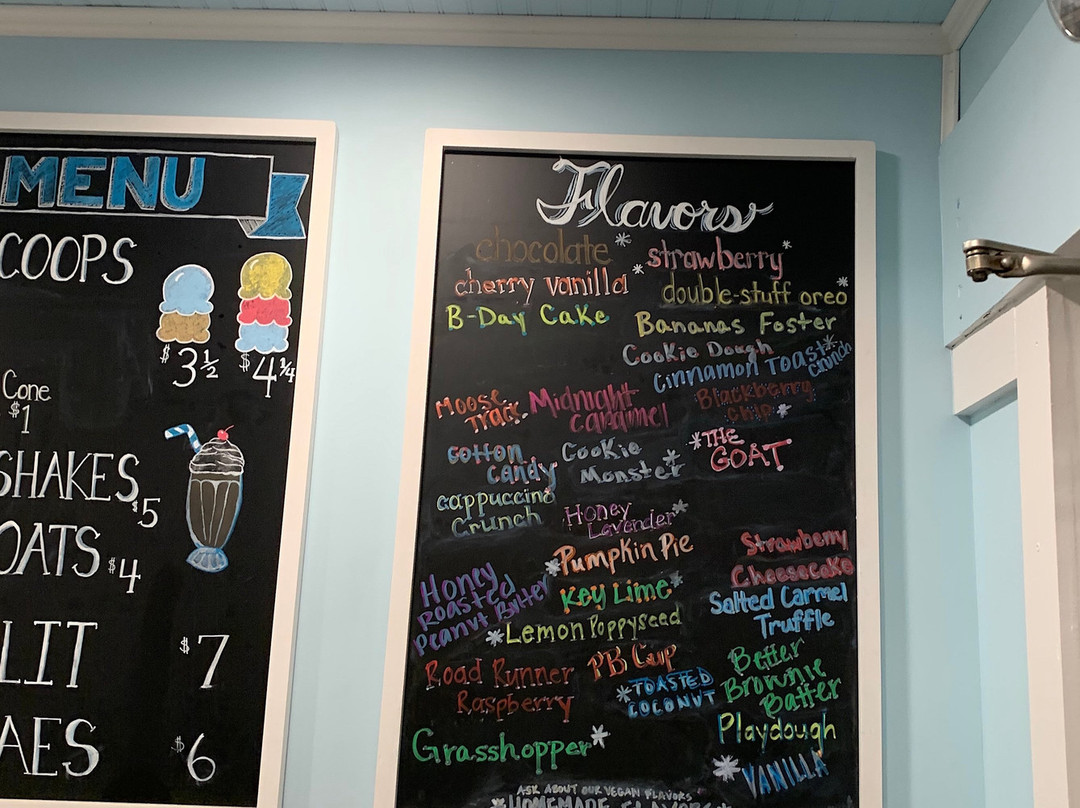 MENU
COOPS
$3½ $4¼
Cone
$1
SHAKES
$5
OATS $4
LIT $7
AES $6
Flavors
chocolate * strawberry *
cherry vanilla * double-stuff oreo *
B-Day Cake Bananas Foster
Cookie Dough
Cinnamon Toast * Crunch
Moose Tracc
Midnight Caramel
Blackberry Chip *
Cotton Candy
Cookie Monster *
* THE GOAT
cappuccino Crunch
Honey Lavender *
* Pumpkin Pie
Strawberry Cheesecake
Honey Roasted Peanut Butter
Key Lime *
Salted Carmel Truffle
* Lemon Poppyseed
Road Runner Raspberry
PB Cup
* TOASTED COCONUT
Better Brownie Batter
Playdough
Grasshopper *
* VANILLA
ASK ABOUT OUR VEGAN FLAVORS
* HOMEMADE FLAVORS *